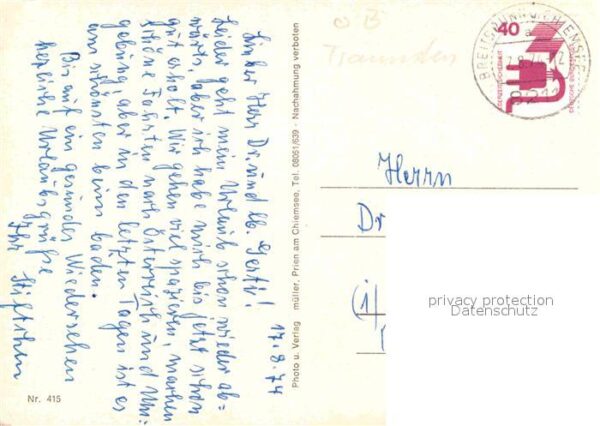 17.8.74
Lieber Herr Dr. und lb. Gerti!
Leider geht mein Urlaub schon wieder ab=
wärts, aber ich habe mich bis jetzt schon
gut erholt. Wir gehen viel spazieren, machen
schöne Fahrten nach Österreich und Um=
gebung, aber in den letzten Tagen ist es
am schönsten beim baden.
Bis auf ein gesundes Wiedersehen
herzliche Urlaubsgrüße
Ihr
Nr. 415
Photo u. Verlag müller, Prien am Chiemsee, Tel. 08051/639 - Nachahmung verboten
OB
Traunstein
40
DEUTSCHE BUNDESPOST
8211
Herrn
Dr
(1/
privacy protection
Datenschutz